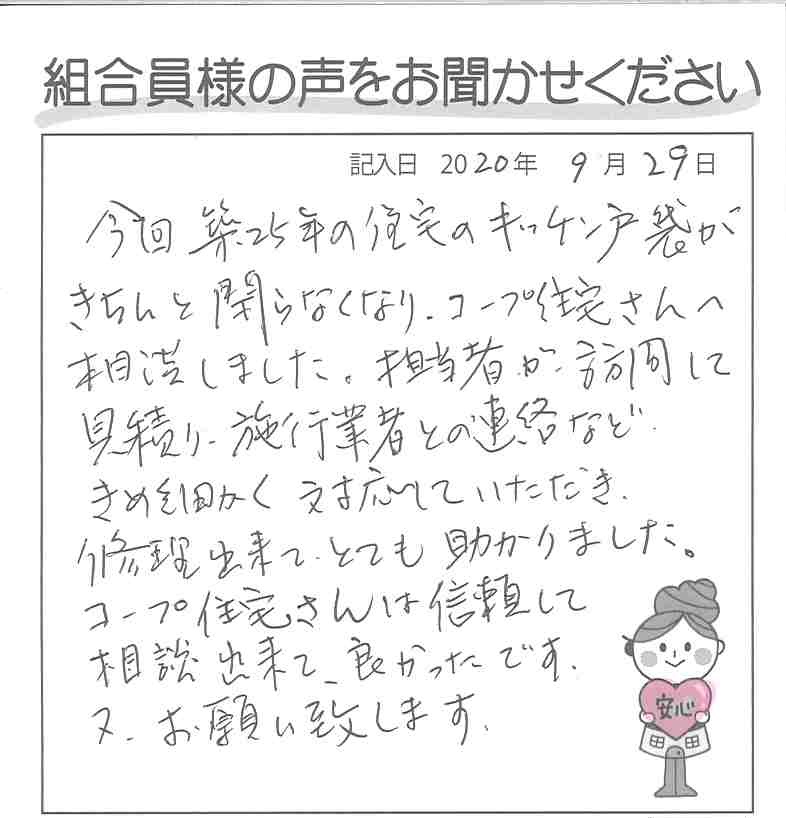 組合員様の声をお聞かせください
記入日 2020年 9月29日
今回 築25年の住宅のキッチン戸袋が
きちんと閉らなくなり、コープ住宅さんへ
相談しました。担当者が訪問して
見積り、施行業者との連絡など、
きめ細かく対応していただき、
修理出来て、とても助かりました。
コープ住宅さんは信頼して
相談出来て、良かったです。
又、お願い致します。
安心